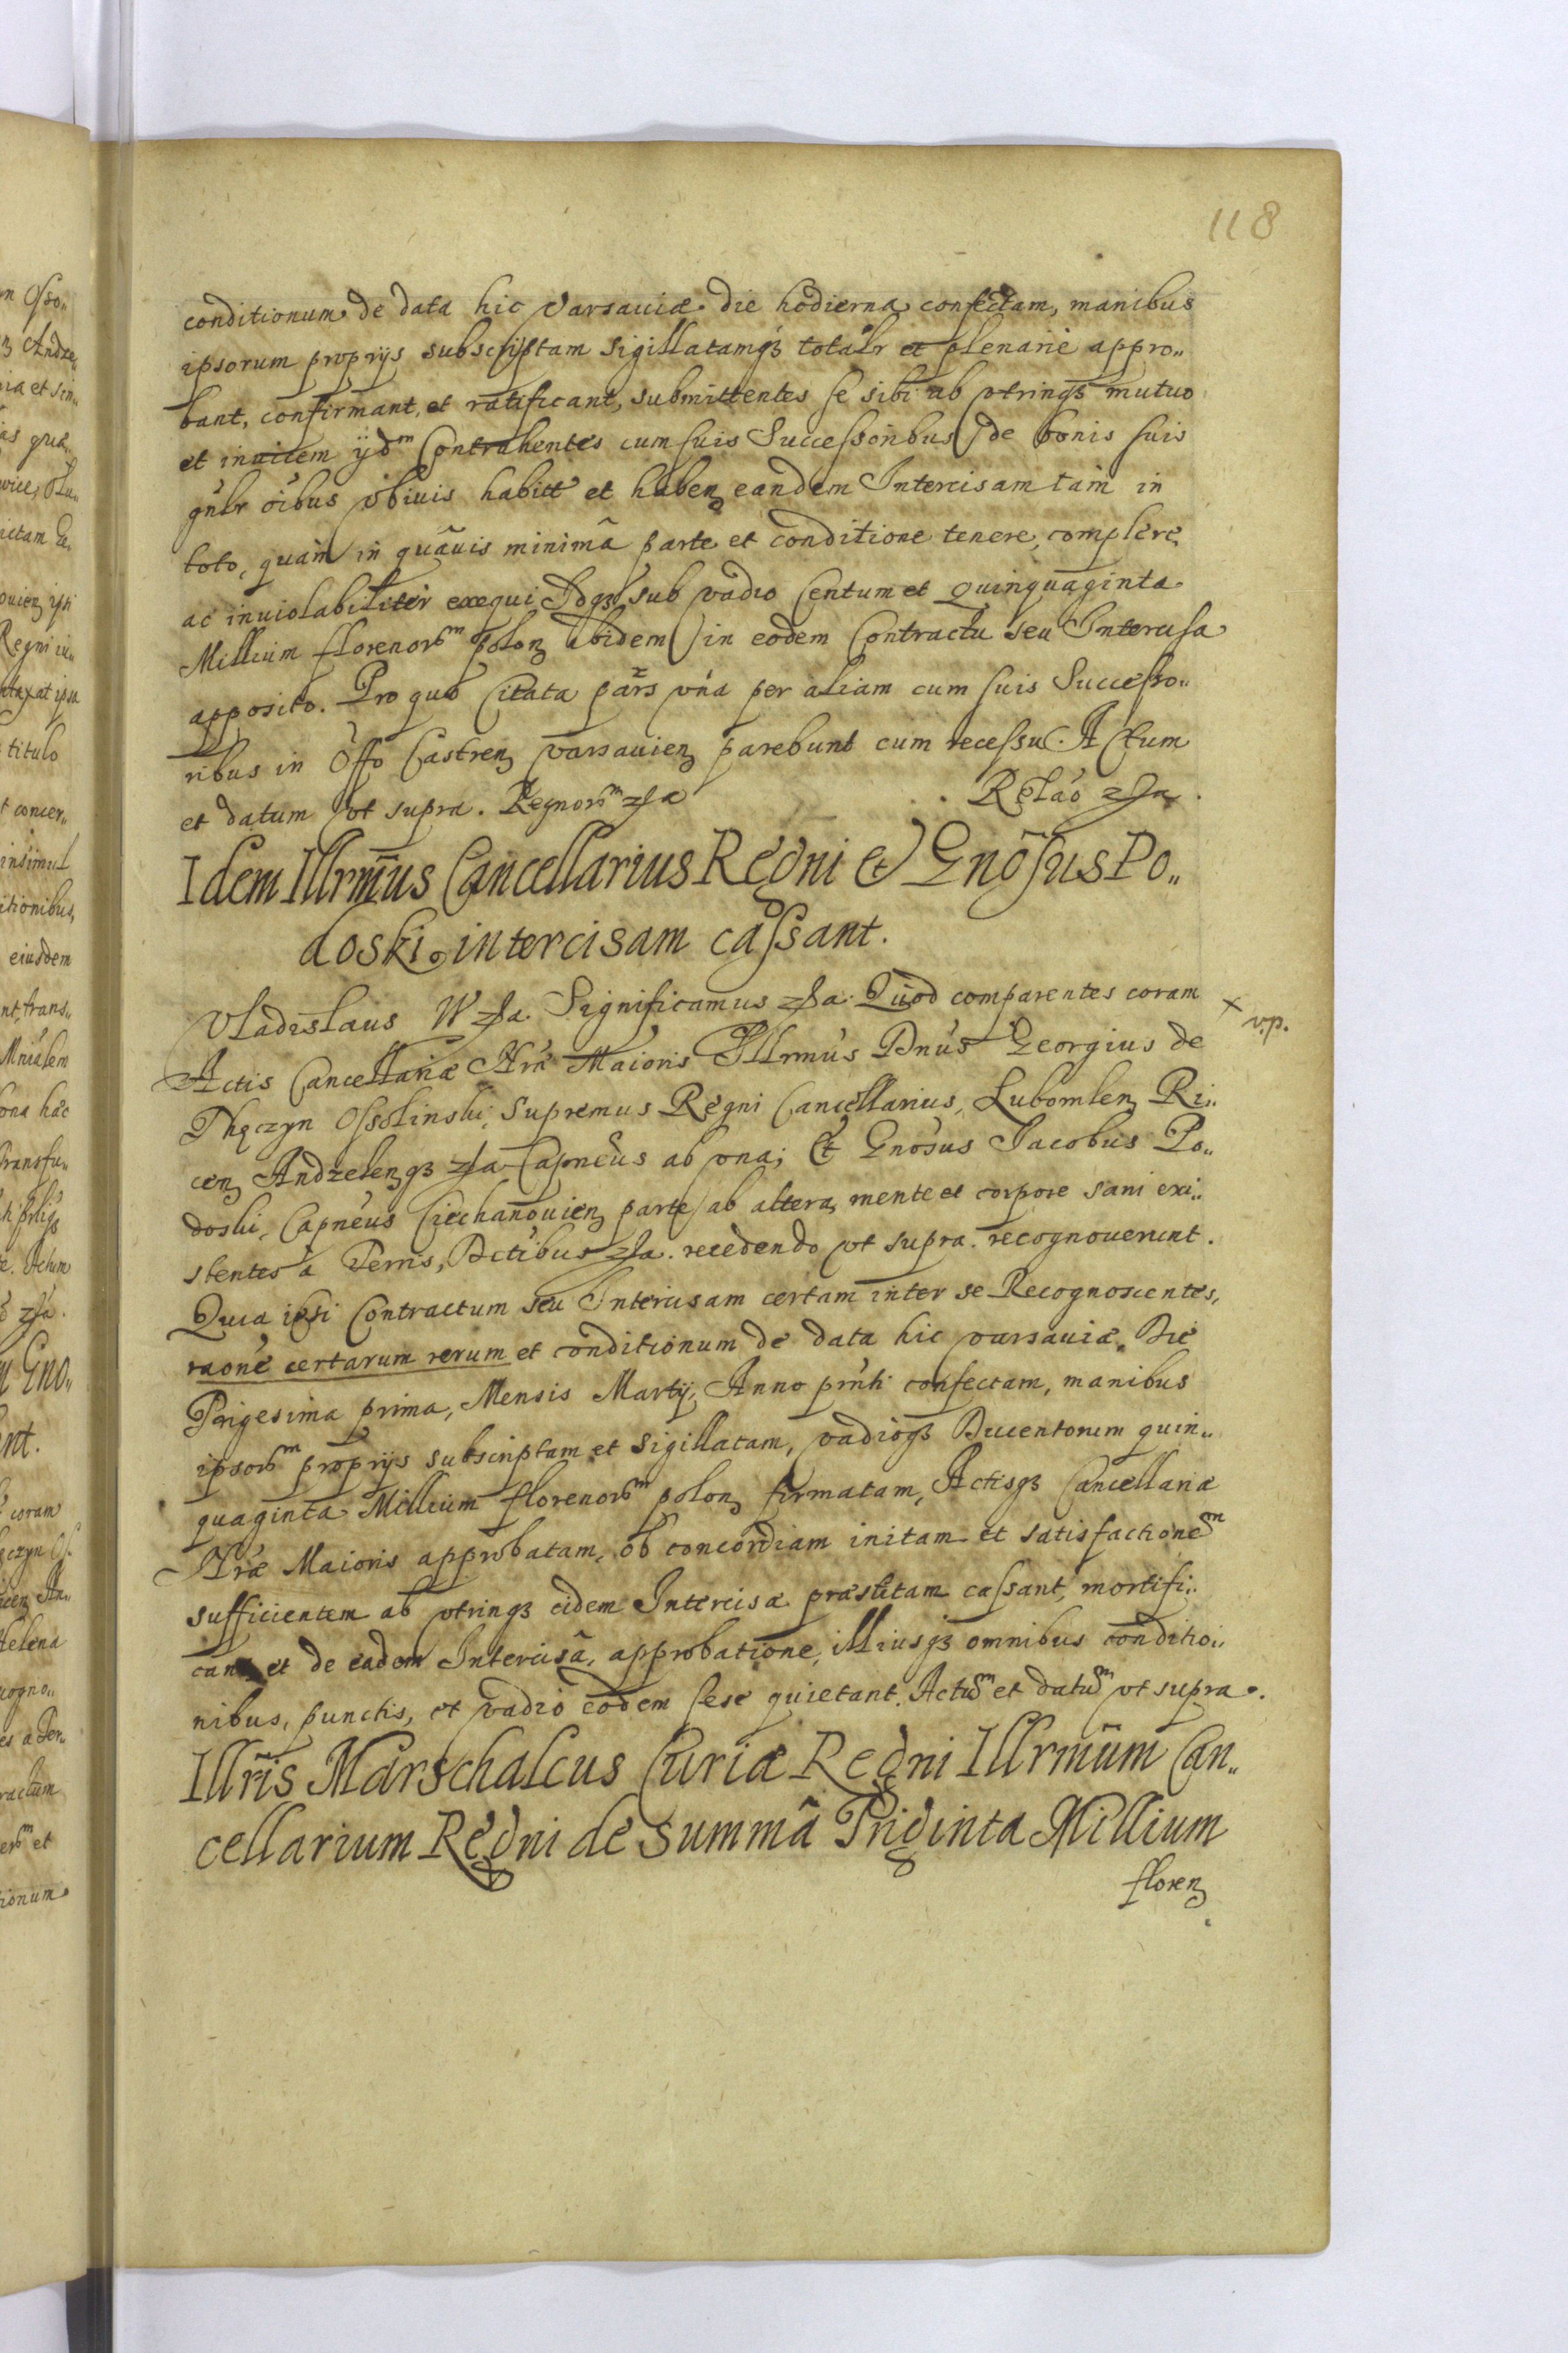 118
conditionum de data hic Varsauiæ die hodierna confectam, manibus
ipsorum proprijs subscriptam sigillatamqꝫ totalr et plenariè appro„
bant, confirmant, et ratificant, submittentes se sibi ab vtrinqꝫ mutuo
et inuicem ijdm Contrahentes cum suis Successoribus de bonis suis
gnlr oibus vbiuis habitt et haben eandem Intercisam tam in
toto, quàm in quâuis minimâ parte et conditione tenere, complere
ac inuiolabiliter exequi Idqꝫ sub vadio Centum et Quinquaginta
Millium florenorm polon ibidem in eodem Contractu seu Intercisa
apposito. Pro quo Citata pars vna per aliam cum suis Successo„
ribus in Offo Castren varsauien parebunt cum recessu. Actum
et datum vt supra. Regnorm zſa Relao zſa.
Idem Illrmus Cancellarius Regni et Gnosus Po„
doski intercisam cassant.
Vladislaus IV zſa. Significamus zſa. Quod comparentes coram
+ v.p.
Actis Cancellariæ Nræ Maioris Illrmus Dnus Georgius de
Thęczyn Ossolinski, Supremus Regni Cancellarius, Lubomlen Ri„
cen Andzelenqꝫ zſa Capneus ab vna; Et Gnosus Jacobus Po„
doski, Capneus Ciechanouien parte ab altera, mente et corpore sani exi„
stentes à Terris, Dctibus zſa. recedendo vt supra. recognouerunt.
Quia ipsi Contractum seu Intercisam certam inter se Recognoscentes,
raone certarum rerum et conditionum de data hic varsauiæ, Die
Trigesima prima, Mensis Martij, Anno prnti confectam, manibus
ipsorm proprijs subscriptam et sigillatam, vadioqꝫ Ducentorum quin„
quaginta Millium florenorm polon firmatam, Actisqꝫ Cancellariæ
Nræ Maioris approbatam, ob concordiam initam et satisfactionem
sufficientem ab vtrinqꝫ eidem Intercisæ præstitam cassant, mortifi„
cant et de eadem Intercisâ, approbatione, illiusqꝫ omnibus conditio„
nibus, punctis, et vadio eodem sese quietant. Actum et datum vt supra.
Illris Marschalcus Curiæ Regni Illrmum Can„
cellarium Regni de summâ Triginta Millium
floren